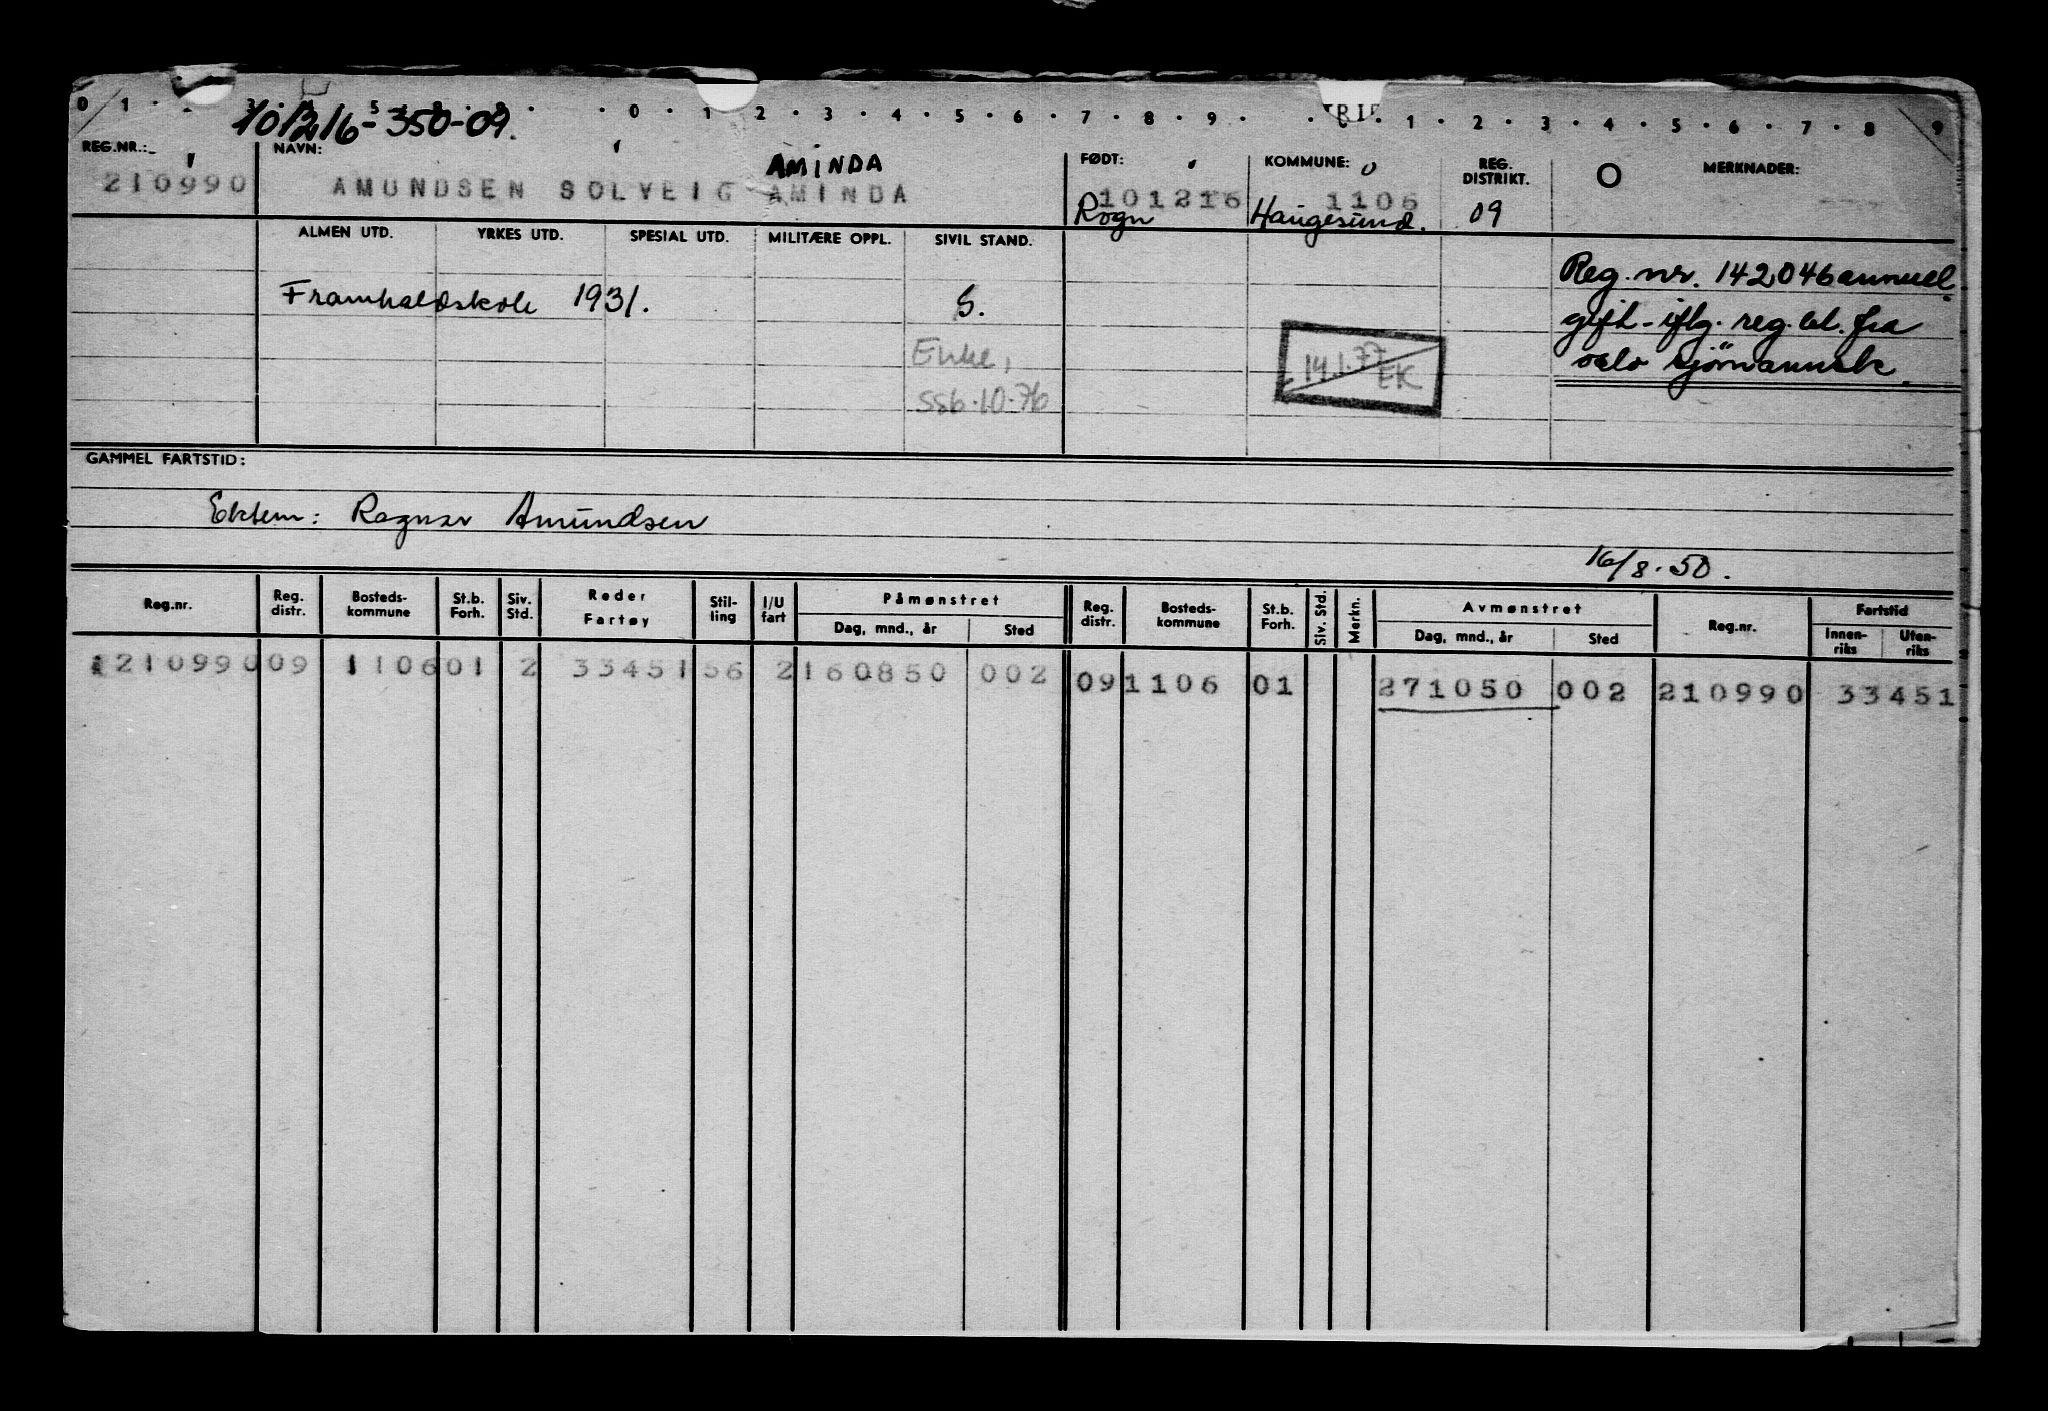 0 1 3 5 0 1 2 3 4 5 6 7 8 9 1 2 3 4 5 6 7 8 9
101216-350-09.
REG.NR.: NAVN: FØDT: KOMMUNE: REG. DISTRIKT. MERKNADER:
AMINDA
210990 AMUNDSEN SOLVEIG AMINDA 101216 1106
Rogn Haugesund. 09
ALMEN UTD. YRKES UTD. SPESIAL UTD. MILITÆRE OPPL. SIVIL STAND.
Reg. nr. 142046 annuel.
Framhaldskole 1931. G.
gift - iflg. reg. bl. fra
Enke, 14.1.77 EK
oslo sjömannsk.
SSb.10.76
GAMMEL FARTSTID:
Ektem: Ragnar Amundsen
16/8-50.
Reg.nr. Reg. distr. Bosteds-kommune St.b. Forh. Siv. Std. Reder Fartøy Stil-ling I/U fart Påmønstret Reg. distr. Bosteds-kommune St.b. Forh. Siv. Std. Merkn. Avmønstret Reg.nr. Fartstid
Dag, mnd., år Sted Dag, mnd., år Sted Innen-riks Uten-riks
210990 09 1106 01 2 33451 56 2 160850 002 09 1106 01 271050 002 210990 33451